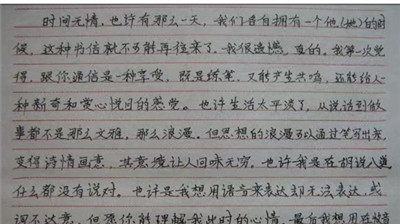 时间无情，也许有那么一天，我们各自拥有一个他（她）的时
候，这种书信就不可能再往来了。我很遗憾，真的。我第一次觉
得，跟你通信是一种享受，既是练笔，又能产生共鸣，还能给人一
种新奇和赏心悦目的感觉。也许生活太平淡了，从说话到做
事都不是那么文雅，那么浪漫。但思想的浪漫可以通过笔写出来，
变得诗情画意，其意境让人回味无穷，也许我是在胡说八道
什么都没有说对。也许是我想用语言来表达却无法表达，或
词不达意，但愿你能理解我此时的心情，最后我想用在